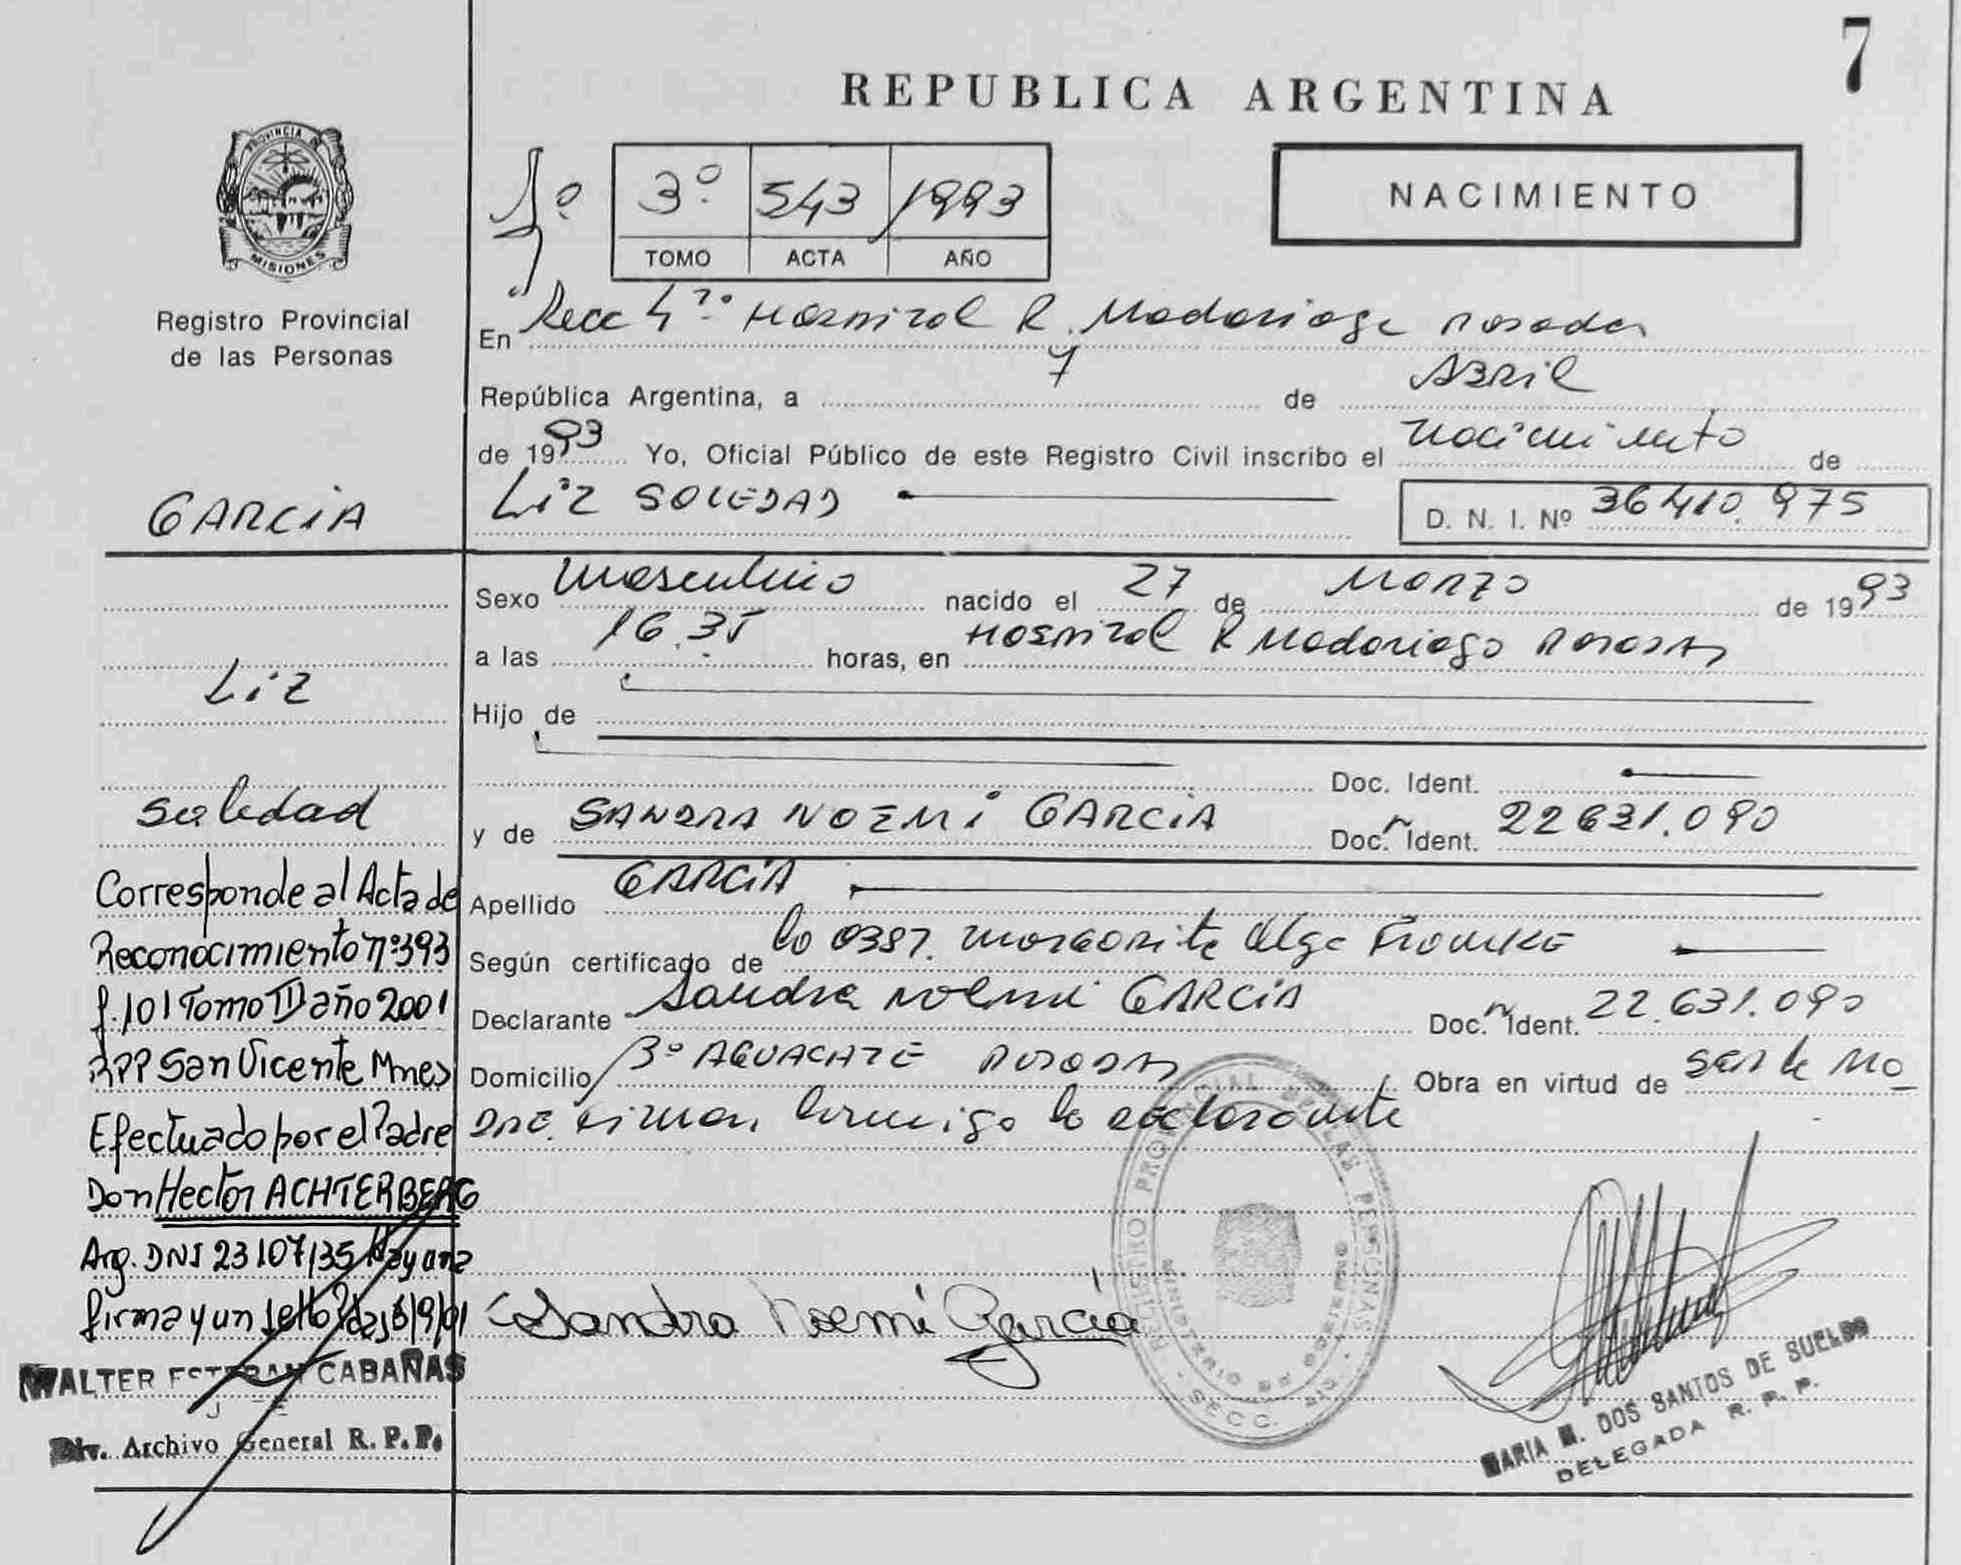 7
REPUBLICA ARGENTINA
PROVINCIA DE
MISIONES
Registro Provincial
de las Personas
3º 543 /1993
TOMO ACTA AÑO
NACIMIENTO
En Secc 4ª Hospital R. Madariaga Posadas
República Argentina, a 7 de Abril
de 1993 Yo, Oficial Público de este Registro Civil inscribo el nacimiento de
LIZ SOLEDAD
D. N. I. Nº 36.410.975
GARCIA
Sexo Masculino nacido el 27 de Marzo de 1993
a las 16.35 horas, en Hospital R Madariaga Posadas
Liz
Hijo de
Doc. Ident.
Soledad
y de SANDRA NOEMI GARCIA Doc. Ident. 22631.090
Apellido GARCIA
Según certificado de la Obst. Margarita Olga
Declarante Sandra Noemi GARCIA Doc. Ident. 22.631.090
Domicilio Bº AGUACATE POSADAS Obra en virtud de ser la Ma
dre. Firma conmigo la declarante
Corresponde al Acta de
Reconocimiento nº 393
f. 101 Tomo II año 2001
RPP San Vicente Mnes
Efectuado por el Padre
Don Hector ACHTERBERG
Arg. DNI 23107135 Hay una
firma y un sello Pdas 6/9/01
WALTER ESTEBAN CABAÑAS
Div. Archivo General R. P. P.
Sandra Noemí García
REGISTRO PROVINCIAL DE LAS PERSONAS
MINISTERIO DE GOBIERNO
SECC.
MARIA M. DOS SANTOS DE SUELDO
DELEGADA R. P. P.